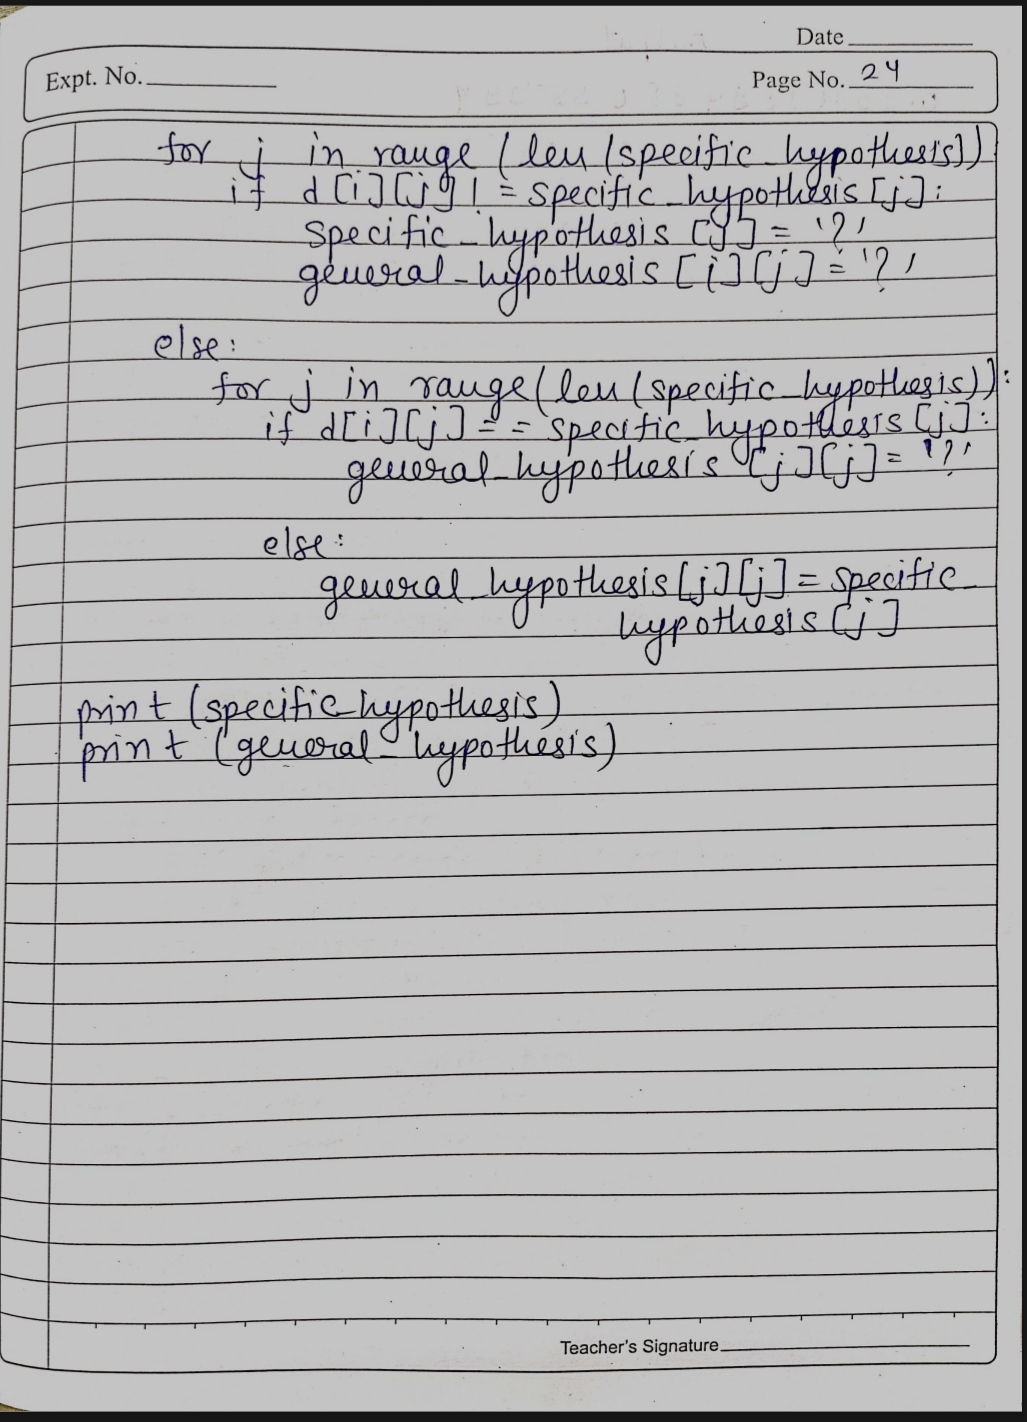 Date
Expt. No.
Page No. 24
for j in range (len (specific_hypothesis))
if d[i][j] != specific_hypothesis [j]:
specific_hypothesis [j] = '?'
general_hypothesis [j][j] = '?'
else:
for j in range(len (specific_hypothesis)):
if d[i][j] == specific_hypothesis [j]:
general_hypothesis [j][j] = '?'
else:
general_hypothesis[j][j] = specific_
hypothesis [j]
print (specific_hypothesis)
print (general_hypothesis)
Teacher's Signature